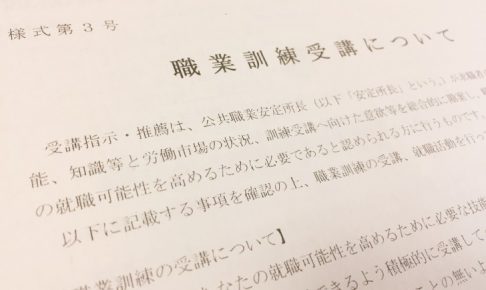 様式第3号
職業訓練受講について
受講指示・推薦は、公共職業安定所長(以下「安定所長」という。)が求職者の
能、知識等と労働市場の状況、訓練受講へ向けた意欲等を総合的に勘案し、
の就職可能性を高めるために必要であると認められる方に行うものです。
以下に記載する事項を確認の上、職業訓練の受講、就職活動を行っ
職業訓練の受講について】
なたの就職可能性を高めるために必要な技能
できるよう積極的に受講して
ことの無いよ